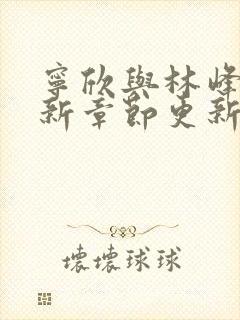 寧欣與林峰
新章節更新
壞壞球球